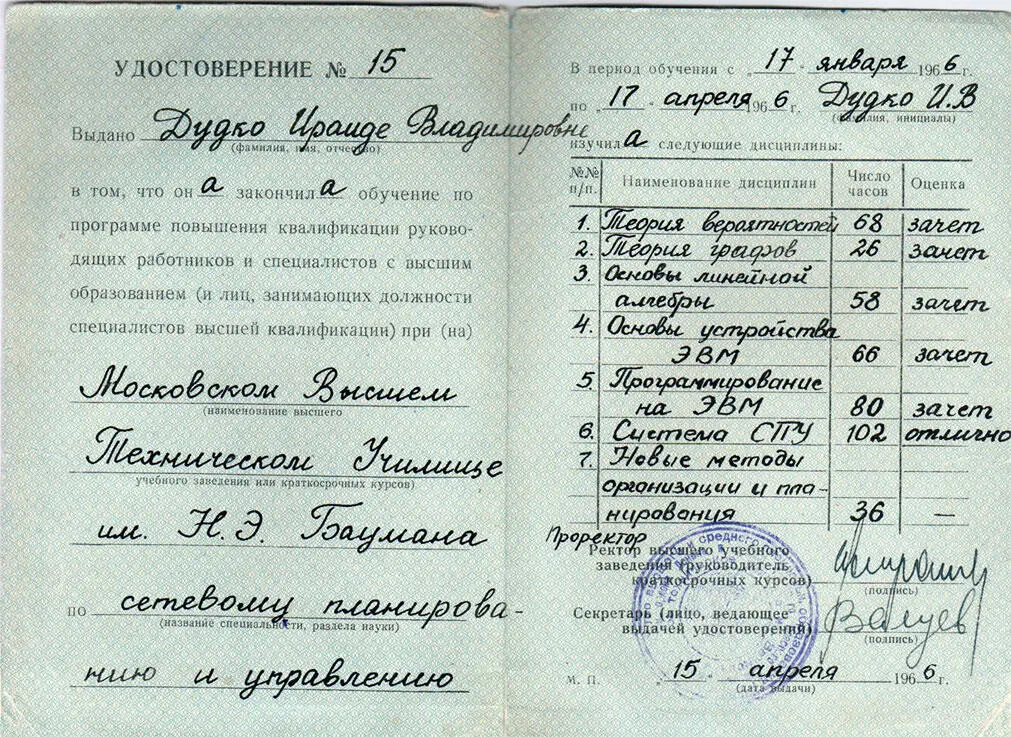 УДОСТОВЕРЕНИЕ № 15
Выдано Дудко Ираиде Владимировне
(фамилия, имя, отчество)
в том, что он а закончил а обучение по
программе повышения квалификации руково-
дящих работников и специалистов с высшим
образованием (и лиц, занимающих должности
специалистов высшей квалификации) при (на)
Московском Высшем
(наименование высшего
Техническом Училище
учебного заведения или краткосрочных курсов)
им. Н.Э. Баумана
по сетевому планирова-
(название специальности, раздела науки)
нию и управлению
В период обучения с „17" января 1966 г.
по „17" апреля 1966 г. Дудко И.В
(фамилия, инициалы)
изучил а следующие дисциплины:
№№ п/п. Наименование дисциплин Число часов Оценка
1. Теория вероятностей 68 зачет
2. Теория графов 26 зачет
3. Основы линейной
алгебры 58 зачет
4. Основы устройства
ЭВМ 66 зачет
5 Программирование
на ЭВМ 80 зачет
6. Система СПУ 102 отлично
7. Новые методы
организации и пла-
нирования 36 —
Проректор
Ректор высшего учебного
заведения (руководитель
краткосрочных курсов)
(подпись)
Секретарь (лицо, ведающее
выдачей удостоверений) Валуев
(подпись)
М. П. „15" апреля 1966 г.
(дата выдачи)